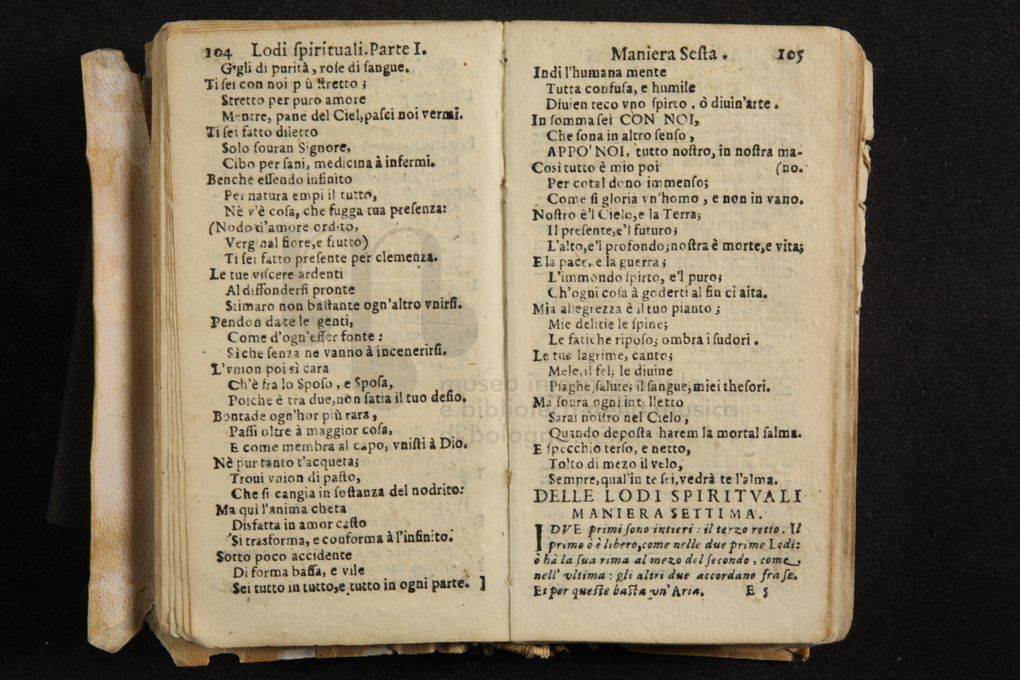 104 Lodi ſpirituali. Parte I.
Gigli di purità, roſe di ſangue.
Ti ſei con noi più ſtretto;
Stretto per puro amore
Mentre, pane del Ciel, paſci noi vermi.
Ti ſei fatto diletto
Solo ſouran Signore,
Cibo per ſani, medicina à infermi.
Benche eſſendo infinito
Per natura empi il tutto,
Nè v'è coſa, che fugga tua preſenza:
(Nodo d'amore ordito,
Verginal fiore, e frutto)
Ti ſei fatto preſente per clemenza.
Le tue viſcere ardenti
Al diffonderſi pronte
Stimaro non baſtante ogn'altro vnirſi.
Pendon da te le genti,
Come d'ogn'eſſer fonte:
Sì che ſenza ne vanno à incenerirſi.
L'vnion poi sì cara
Ch'è fra lo Spoſo, e Spoſa,
Poiche è tra due, non ſatia il tuo deſio.
Bontade ogn'hor più rara,
Paſſi oltre à maggior coſa,
E come membra al capo, vniſti à Dio.
Nè pur tanto t'acqueta;
Troui vnion di paſto,
Che ſi cangia in ſoſtanza del nodrito:
Ma qui l'anima cheta
Disfatta in amor caſto
Si trasforma, e conforma à l'infinito.
Sotto poco accidente
Di forma baſſa, e vile
Sei tutto in tutto, e tutto in ogni parte.
Maniera Seſta. 105
Indi l'humana mente
Tutta confuſa, e humile
Diuien teco vno ſpirto, ò diuin'arte.
In ſomma ſei CON NOI,
Che ſona in altro ſenſo,
APPO' NOI, tutto noſtro, in noſtra ma-
Così tutto è mio poi (no.
Per cotal dono immenſo;
Come ſi gloria vn'homo, e non in vano.
Noſtro è'l Cielo, e la Terra;
Il preſente, e'l futuro;
L'alto, e'l profondo; noſtra è morte, e vita;
E la pace, e la guerra;
L'immondo ſpirto, e'l puro;
Ch'ogni coſa à goderti al fin ci aita.
Mia allegrezza è il tuo pianto;
Mie delitie le ſpine;
Le fatiche ripoſo; ombra i ſudori.
Le tue lagrime, canto;
Mele, il fel; le diuine
Piaghe, ſalute; il ſangue, miei theſori.
Ma ſoura ogni intelletto
Sarai noſtro nel Cielo,
Quando depoſta harem la mortal ſalma.
E ſpecchio terſo, e netto,
Tolto di mezo il velo,
Sempre, qual'in te ſei, vedrà te l'alma.
DELLE LODI SPIRITVALI
MANIERA SETTIMA.
I DVE primi ſono intieri: il terzo rotto. Il
primo ò è libero, come nelle due prime Lodi:
ò hà la ſua rima al mezo del ſecondo, come
nell' vltima: gli altri due accordano fra ſe.
Et per queſte baſta vn'Aria. E 5
museo in
e bibliote usica
di bologn